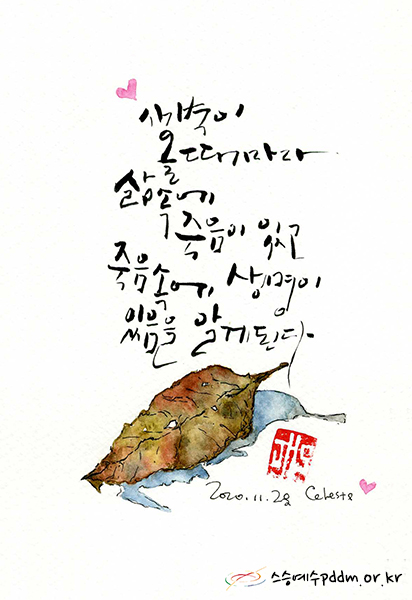 새벽이
올 때마다
삶 속에
죽음이 있고
죽음 속에 생명이
있음을 알게된다.
2020.11.2일 Celeste
스승예수pddm.or.kr